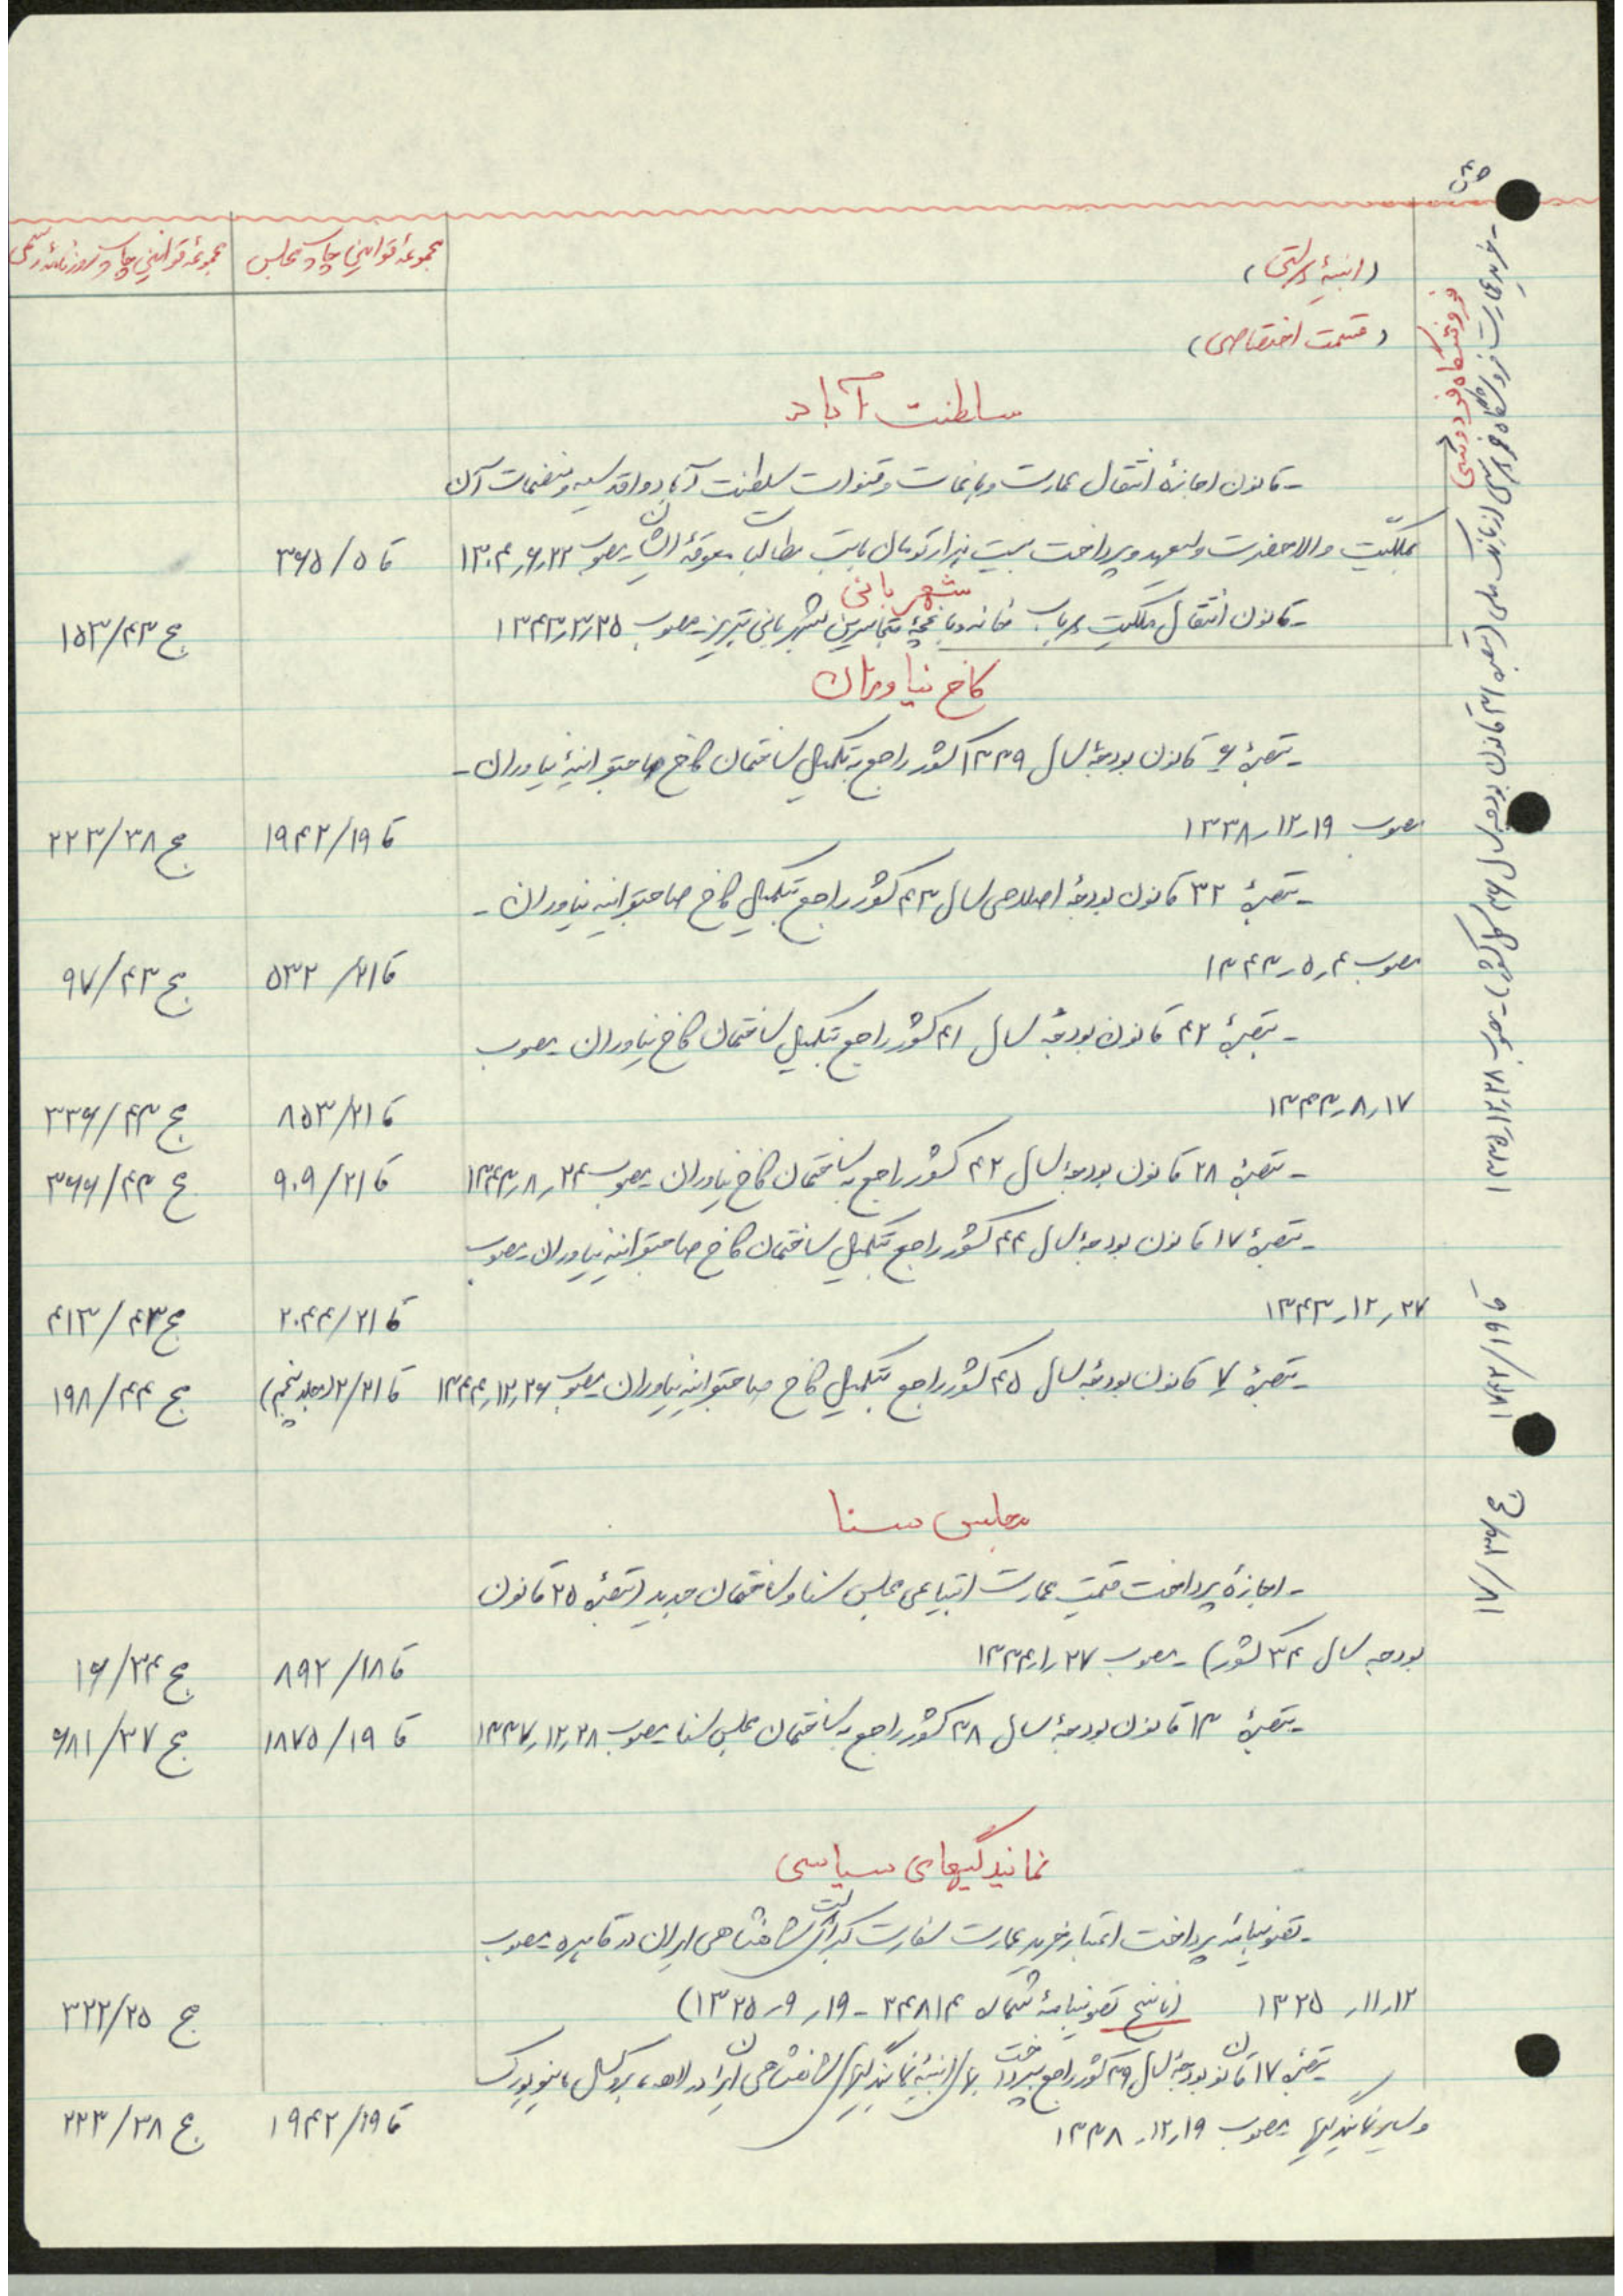 (ابنیهٔ دولتی)
مجموعهٔ قوانین چاپ مجلس
مجموعهٔ قوانین چاپ روزنامهٔ رسمی
(قسمت اختصاصی)
سلطنت آباد
- قانون اجازهٔ انتقال عمارت و باغات و قنوات سلطنت آباد و اقدسیه و منضمات آن
بملکیّت والاحضرت ولیعهد و پرداخت بیست هزار تومان بابت مطالبات معوقهٔ ایشان مصوب ۲۲ر۶ر۱۳۰۴ قا ۵/۳۶۵
شهربانی
- قانون انتقال ملکیت یکباب خانه و باغچهٔ بشهربانی تبریز - مصوب ۲۵ر۳ر۱۳۴۳ ج ۴۳/۱۵۳
کاخ نیاوران
- تبصرهٔ ۶ قانون بودجهٔ سال ۱۳۳۹ کشور راجع به تکمیل ساختمان کاخ صاحبقرانیهٔ نیاوران -
مصوب ۱۹ر۱۲ر۱۳۳۸ قا ۱۹/۱۹۴۲ ج ۳۸/۲۲۳
- تبصرهٔ ۳۲ قانون بودجهٔ اصلاحی سال ۴۳ کشور راجع بتکمیل کاخ صاحبقرانیه نیاوران -
مصوب ۴ر۵ر۱۳۴۳ قا ۲۱/۵۳۲ ج ۴۳/۹۷
- تبصرهٔ ۴۲ قانون بودجهٔ سال ۴۱ کشور راجع بتکمیل ساختمان کاخ نیاوران - مصوب
۱۷ر۸ر۱۳۴۳ قا ۲۱/۸۵۳ ج ۴۳/۳۳۶
- تبصرهٔ ۲۸ قانون بودجهٔ سال ۴۲ کشور راجع به ساختمان کاخ نیاوران - مصوب ۲۴ر۸ر۱۳۴۳ قا ۲۱/۹۰۹ ج ۴۳/۳۶۶
- تبصرهٔ ۱۷ قانون بودجهٔ سال ۴۴ کشور راجع بتکمیل ساختمان کاخ صاحبقرانیه نیاوران - مصوب
۲۷ر۱۲ر۱۳۴۳ قا ۲۱/۲۰۴۴ ج ۴۳/۴۱۳
- تبصرهٔ ۷ قانون بودجهٔ سال ۴۵ کشور راجع بتکمیل کاخ صاحبقرانیه نیاوران مصوب ۲۶ر۱۲ر۱۳۴۴ قا ۲۱/۲ (جلد پنجم) ج ۴۴/۱۹۸
مجلس سنا
- اجازهٔ پرداخت قیمت عمارت ابتیاعی مجلس سنا و ساختمان جدید (تبصرهٔ ۲۵ قانون
بودجه سال ۳۴ کشور) - مصوب ۲۷ر۱ر۱۳۳۴ قا ۱۸/۸۹۲ ج ۳۴/۱۶
- تبصرهٔ ۱۳ قانون بودجهٔ سال ۳۸ کشور راجع به ساختمان مجلس سنا - مصوب ۲۸ر۱۲ر۱۳۳۷ قا ۱۹/۱۸۷۵ ج ۳۷/۶۸۱
نمایندگیهای سیاسی
- تصویبنامهٔ پرداخت اعتبار خرید عمارت سفارت کبرای شاهنشاهی ایران در قاهره - مصوب
۱۲ر۱۱ر۱۳۲۵ (ناسخ تصویبنامهٔ شمارهٔ ۲۴۸۱۴ - ۱۹ر۹ر۱۳۲۵) ج ۲۵/۳۲۲
- تبصرهٔ ۱۷ قانون بودجهٔ سال ۳۹ کشور راجع بپرداخت بهای ابنیهٔ نمایندگیهای شاهنشاهی ایران در لاهه، بروکسل، نیویورک
و سایر نمایندگیها مصوب ۱۹ر۱۲ر۱۳۳۸ قا ۱۹/۱۹۴۲ ج ۳۸/۲۲۳
فروشگاه فردوسی
- خرید عمارت فروشگاه فردوسی از بانک ملی (تبصره ۳۱ قانون بودجه سال ۳۶ کل کشور) - مصوب ۲۸ر۱۲ر۱۳۳۵ قا ۱۹/۱۷۴۲ ج ۳۶/۱۷